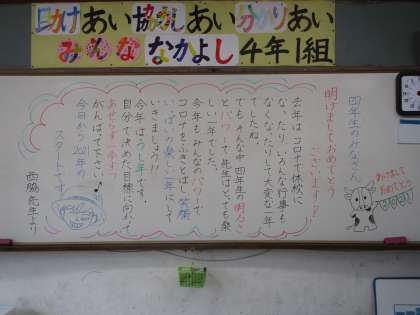 助けあい協力しあい分かりあい
みんななかよし4年1組
四年生のみなさん
明けましておめでとう
ございます!!
去年はコロナで休校に
なったり、いろんな行事も
なくなったりして大変な一年
でしたね。
でもそんな中四年生の明るさ
とパワーで、先生はとっても楽
しい一年でした。
今年もみんなのパワーで
コロナをふきとばし、笑顔
いっぱいの楽しい一年にして
いきましょう!!
今年はうし年です。
自分で決めた目標に向かって
あせらず一歩ずつ
がんばって下さい。
今日から2021年の
スタートです。
西脇先生より
あけまして
おめでとう